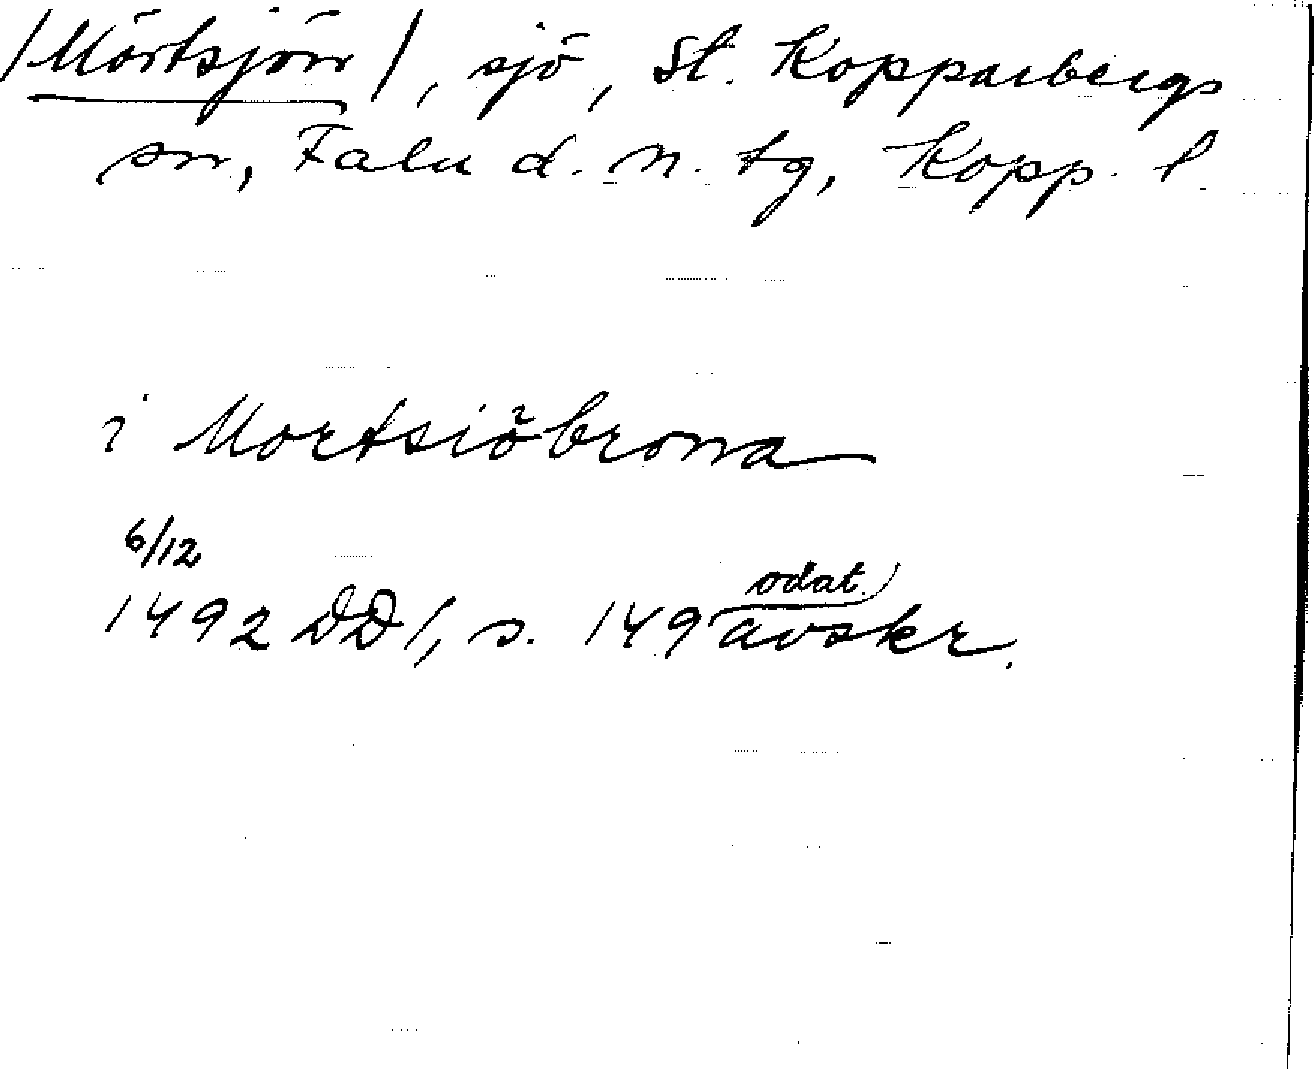 /Mörtsjön/, sjö, St. Kopparbergs
sn, Falu d. n. tg, Kopp. l
i Mortsiöbrona
6/12
1492 DD 1, s. 149 odat. avskr.